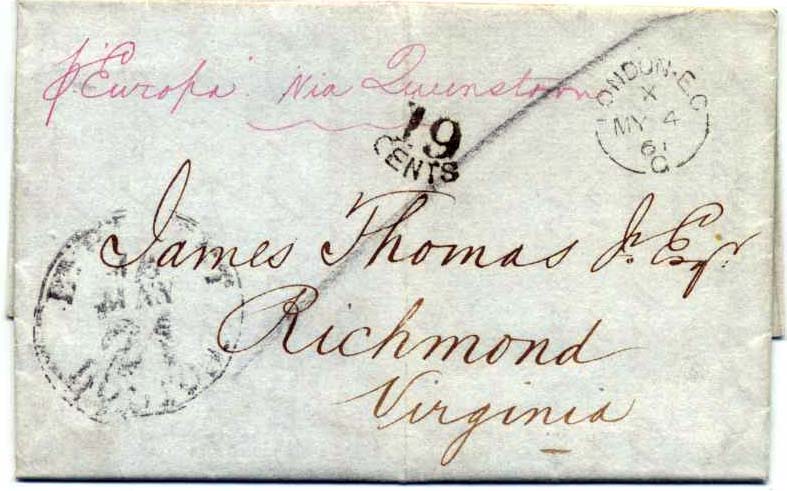 pr Europa Via Queenstown
LONDON·E.C
X
MY 4
61
G
19
CENTS
James Thomas Jr. Esqr.
Richmond
Virginia
MAY
21
BOSTON